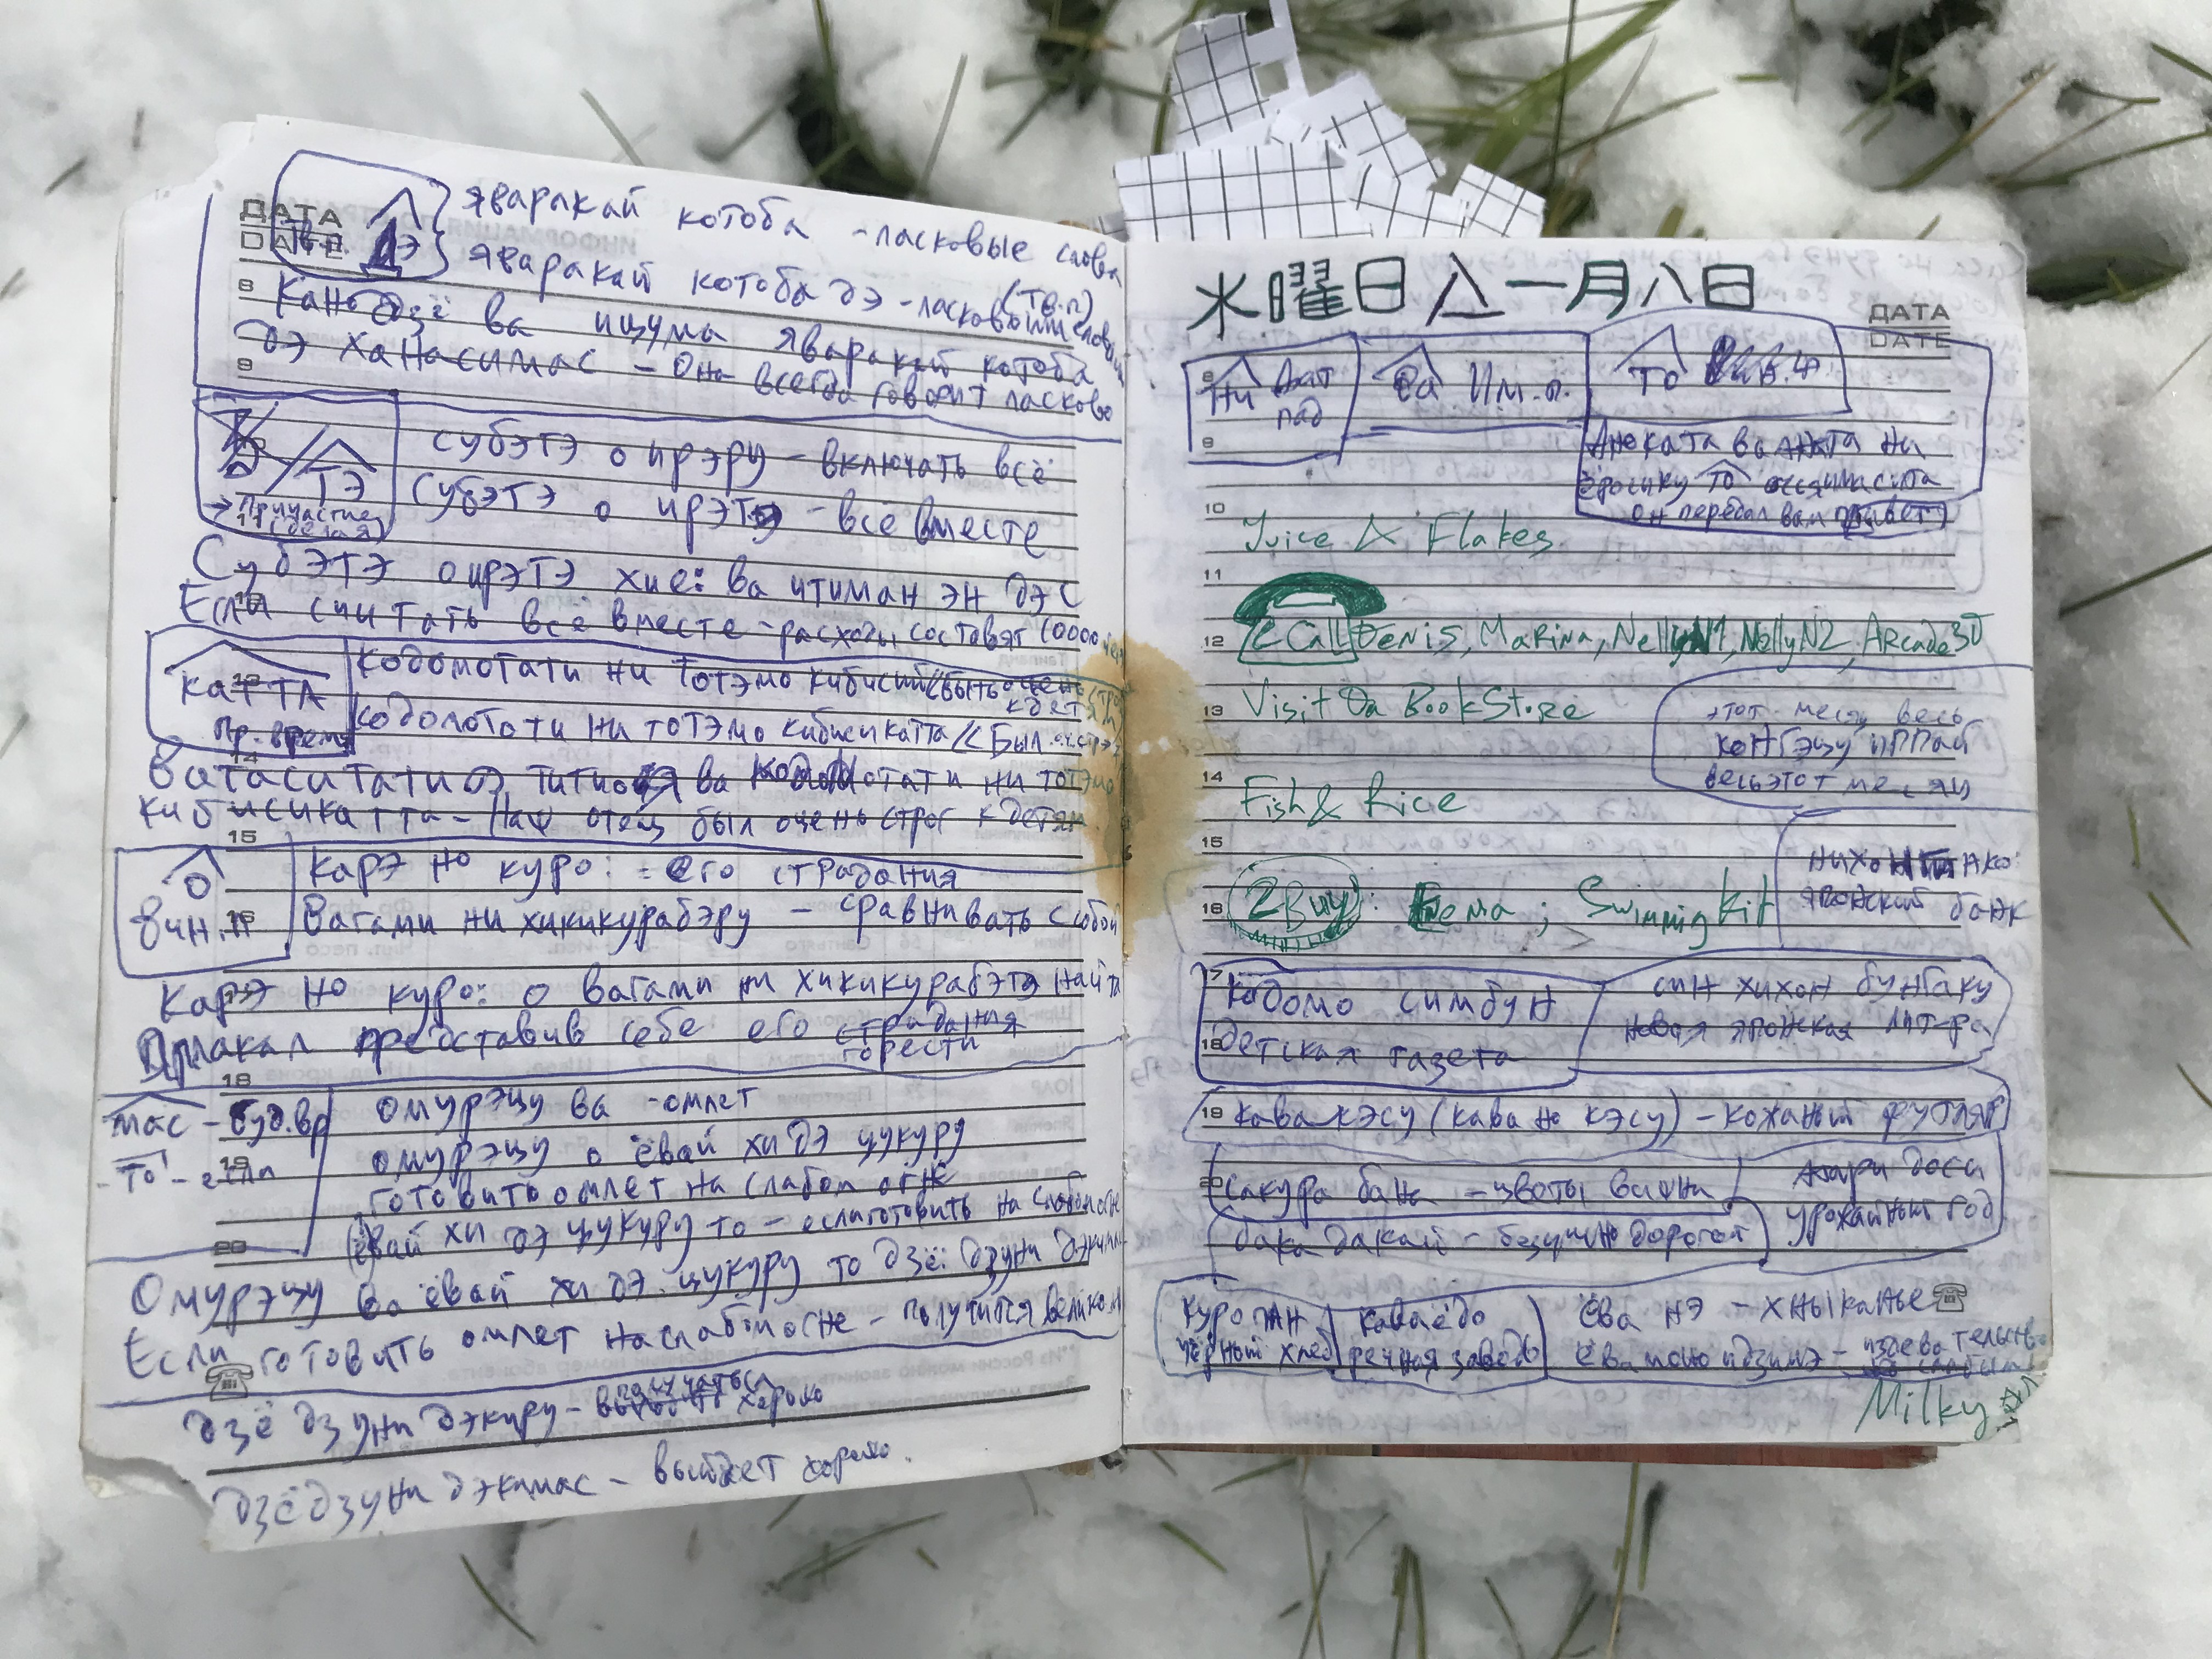 ДАТА
DATE
ДЭ
яваракай котоба - ласковые слова
яваракай котоба дэ - ласковыми словами
(Тв.п)
Канодзё ва ицума яваракай котоба
дэ ханасимас - Она всегда говорит ласково
ТЭ
→ Причастие
субэтэ о ирэру - включать всё
субэтэ о ирэтэ - всё вместе
Субэтэ о ирэтэ хиё: ва итиман эн дэс
Если считать всё вместе - расходы составят 10000
КАТТА
Пр. время
кодомотати ни тотэмо кибисий
кодомотати ни тотэмо кибисикатта
Ватаситати но тити ва кодомотати ни тотэмо
кибисикатта - Наш отец был очень строг к детям
О
Вин.п
Карэ но куро: = его страдания
Вагами ни хикикурабэру - сравнивать с собой
Карэ но куро: о вагами ни хикикурабэтэ найта
Я плакал представив себе его страдания
горести
мас - буд.вр
- то - если
омурэцу ва - омлет
омурэцу о ёвай хи дэ цукуру
готовить омлет на слабом огне
ёвай хи дэ цукуру то - если готовить на слабом огне
Омурэцу ва ёвай хи дэ цукуру то дзё: дзуни
Если готовить омлет на слабом огне - получится
дзё дзуни дэкиру - получаться хорошо
дзё дзуни дэкимас - выйдет хорошо.
水曜日 八一月八日
ДАТА
DATE
Ни Дат
пад
Ва Им.п.
ТО
Аноката ва аната ни
ёросику то оссяимасита
он передал вам привет)
Juice & Flakes
Call Denis, Marina, Nelly N1, Nelly N2, Arcade 3D
Visit Da BookStore
этот месяц весь
конгэцу иппай
весь этот месяц
Fish & Rice
нихон гинко:
японский банк
2Buy: ; Swimming Kit
кодомо симбун
детская газета
син хихон бунгаку
новая японская лит-ра
кава кэсу (кава но кэсу) - кожаный футляр
сакура бана - цветы вишни
атари доси
урожайный год
бака дакай - безумно дорогой
куро пан
чёрный хлеб
каваёдо
речная заводь
ёва нэ - хныканье
Milky
8
9
10
11
12
13
14
15
16
17
18
19
20